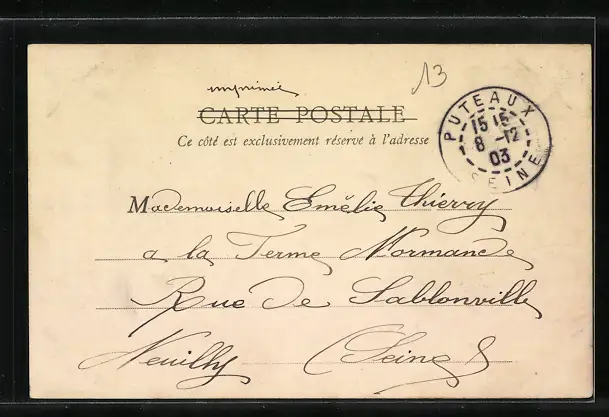 13
imprimée
CARTE POSTALE
Ce côté est exclusivement réservé à l'adresse
PUTEAUX
15 15
8 -12
03
SEINE
Mademoiselle Emélie Thierry
a la Ferme Normande
Rue De Sablonville
Neuilly (Seine)